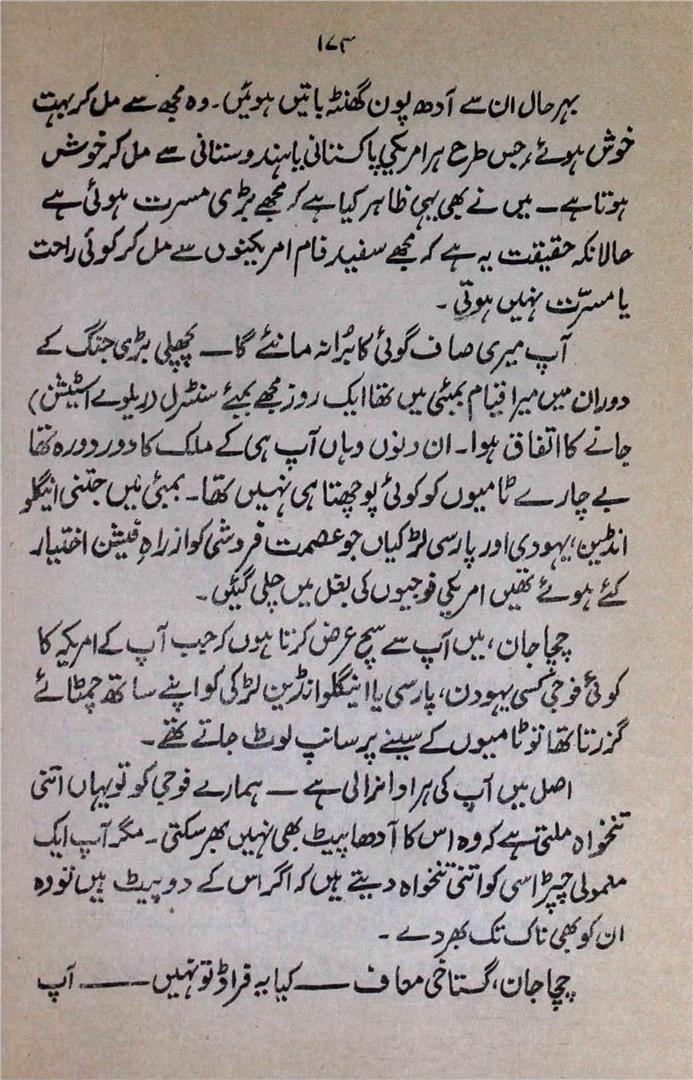 ۱۷۳
بہرحال ان سے آدھ پون گھنٹہ باتیں ہوئیں۔ وہ مجھ سے مل کر بہت
خوش ہوئے، جس طرح ہر امریکی پاکستانی یا ہندوستانی سے مل کر خوش
ہوتا ہے۔ میں نے بھی یہی ظاہر کیا ہے کہ مجھے بڑی مسرت ہوئی ہے
حالانکہ حقیقت یہ ہے کہ مجھے سفید فام امریکنوں سے مل کر کوئی راحت
یا مسرّت نہیں ہوتی۔
آپ میری صاف گوئی کا بُرا نہ مانئے گا — پچھلی بڑی جنگ کے
دوران میں میرا قیام بمبئی میں تھا ایک روز مجھے بمبئے سنٹرل (ریلوے اسٹیشن)
جانے کا اتفاق ہوا۔ ان دنوں وہاں آپ ہی کے ملک کا دور دورہ تھا
بے چارے ٹامیوں کو کوئی پوچھتا ہی نہیں تھا۔ بمبئی میں جتنی اینگلو
انڈین، یہودی اور پارسی لڑکیاں جو عصمت فروشی کو ازراہِ فیشن اختیار
کئے ہوئے تھیں امریکی فوجیوں کی بغل میں چلی گئیں۔
چچا جان، میں آپ سے سچ عرض کرتا ہوں کہ جب آپ کے امریکہ کا
کوئی فوجی کسی یہودن، پارسی یا اینگلو انڈین لڑکی کو اپنے ساتھ چمٹائے
گزرتا تھا تو ٹامیوں کے سینے پر سانپ لوٹ جاتے تھے۔
اصل میں آپ کی ہر ادا نرالی ہے — ہمارے فوجی کو تو یہاں اتنی
تنخواہ ملتی ہے کہ وہ اس کا آدھا پیٹ بھی نہیں بھر سکتی۔ مگر آپ ایک
معمولی چپڑاسی کو اتنی تنخواہ دیتے ہیں کہ اگر اس کے دو پیٹ ہیں تو وہ
ان کو بھی ناک تک بھر دے۔
چچا جان، گستاخی معاف — کیا یہ فراڈ تو نہیں — آپ